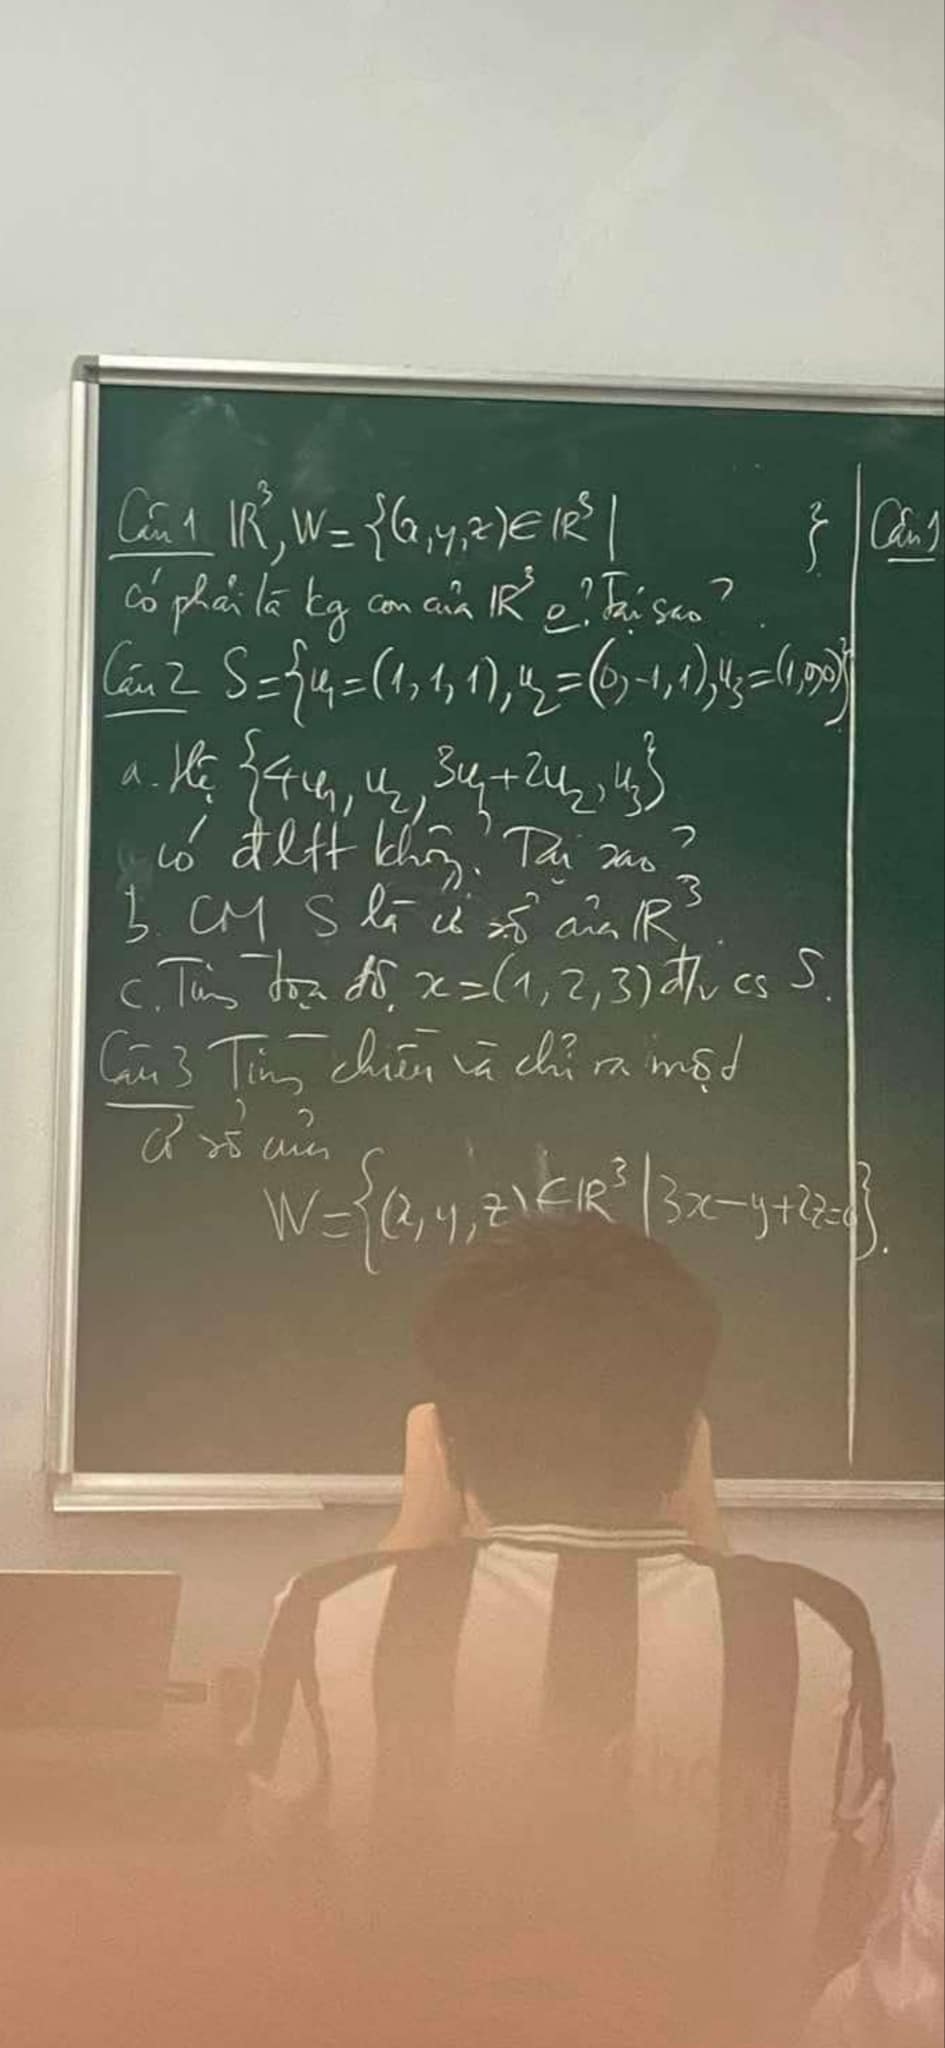 Câu 1 IR³, W = {(x,y,z) ∈ IR³ | }
có phải là kg con của IR³ o? Tại sao?
Câu 2 S = {u₁ = (1,1,1), u₂ = (0,-1,1), u₃ = (1,0,0)}
a. Hệ {4u₁, u₂, 3u₁+2u₂, u₃}
có đltt không? Tại sao?
b. CM S là cơ sở của IR³.
c. Tìm tọa độ x = (1,2,3) đ/v cs S.
Câu 3 Tìm chiều và chỉ ra một
cơ sở của
W = {(x,y,z) ∈ IR³ | 3x-y+2z=0}.
Câu 1